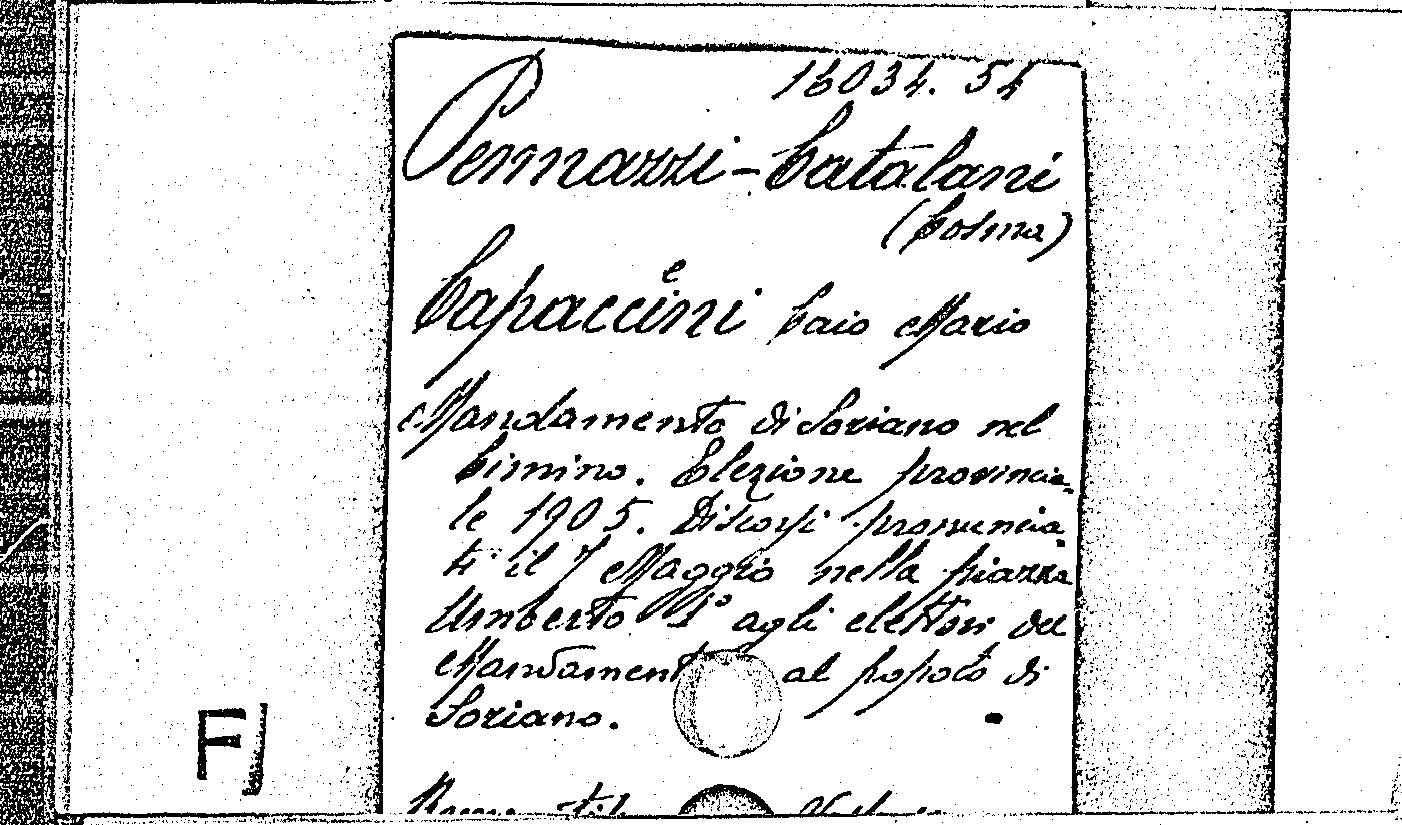 16034. 54
Pennazzi-Catalani
(Cosma)
e
Capaccini Caio Mario
Mandamento di Soriano nel
Cimino. Elezione provincia-
le 1905. Discorsi pronuncia-
ti il 7 Maggio nella piazza
Umberto 1° agli elettori del
Mandament al popolo di
Soriano.
Roma
FJ